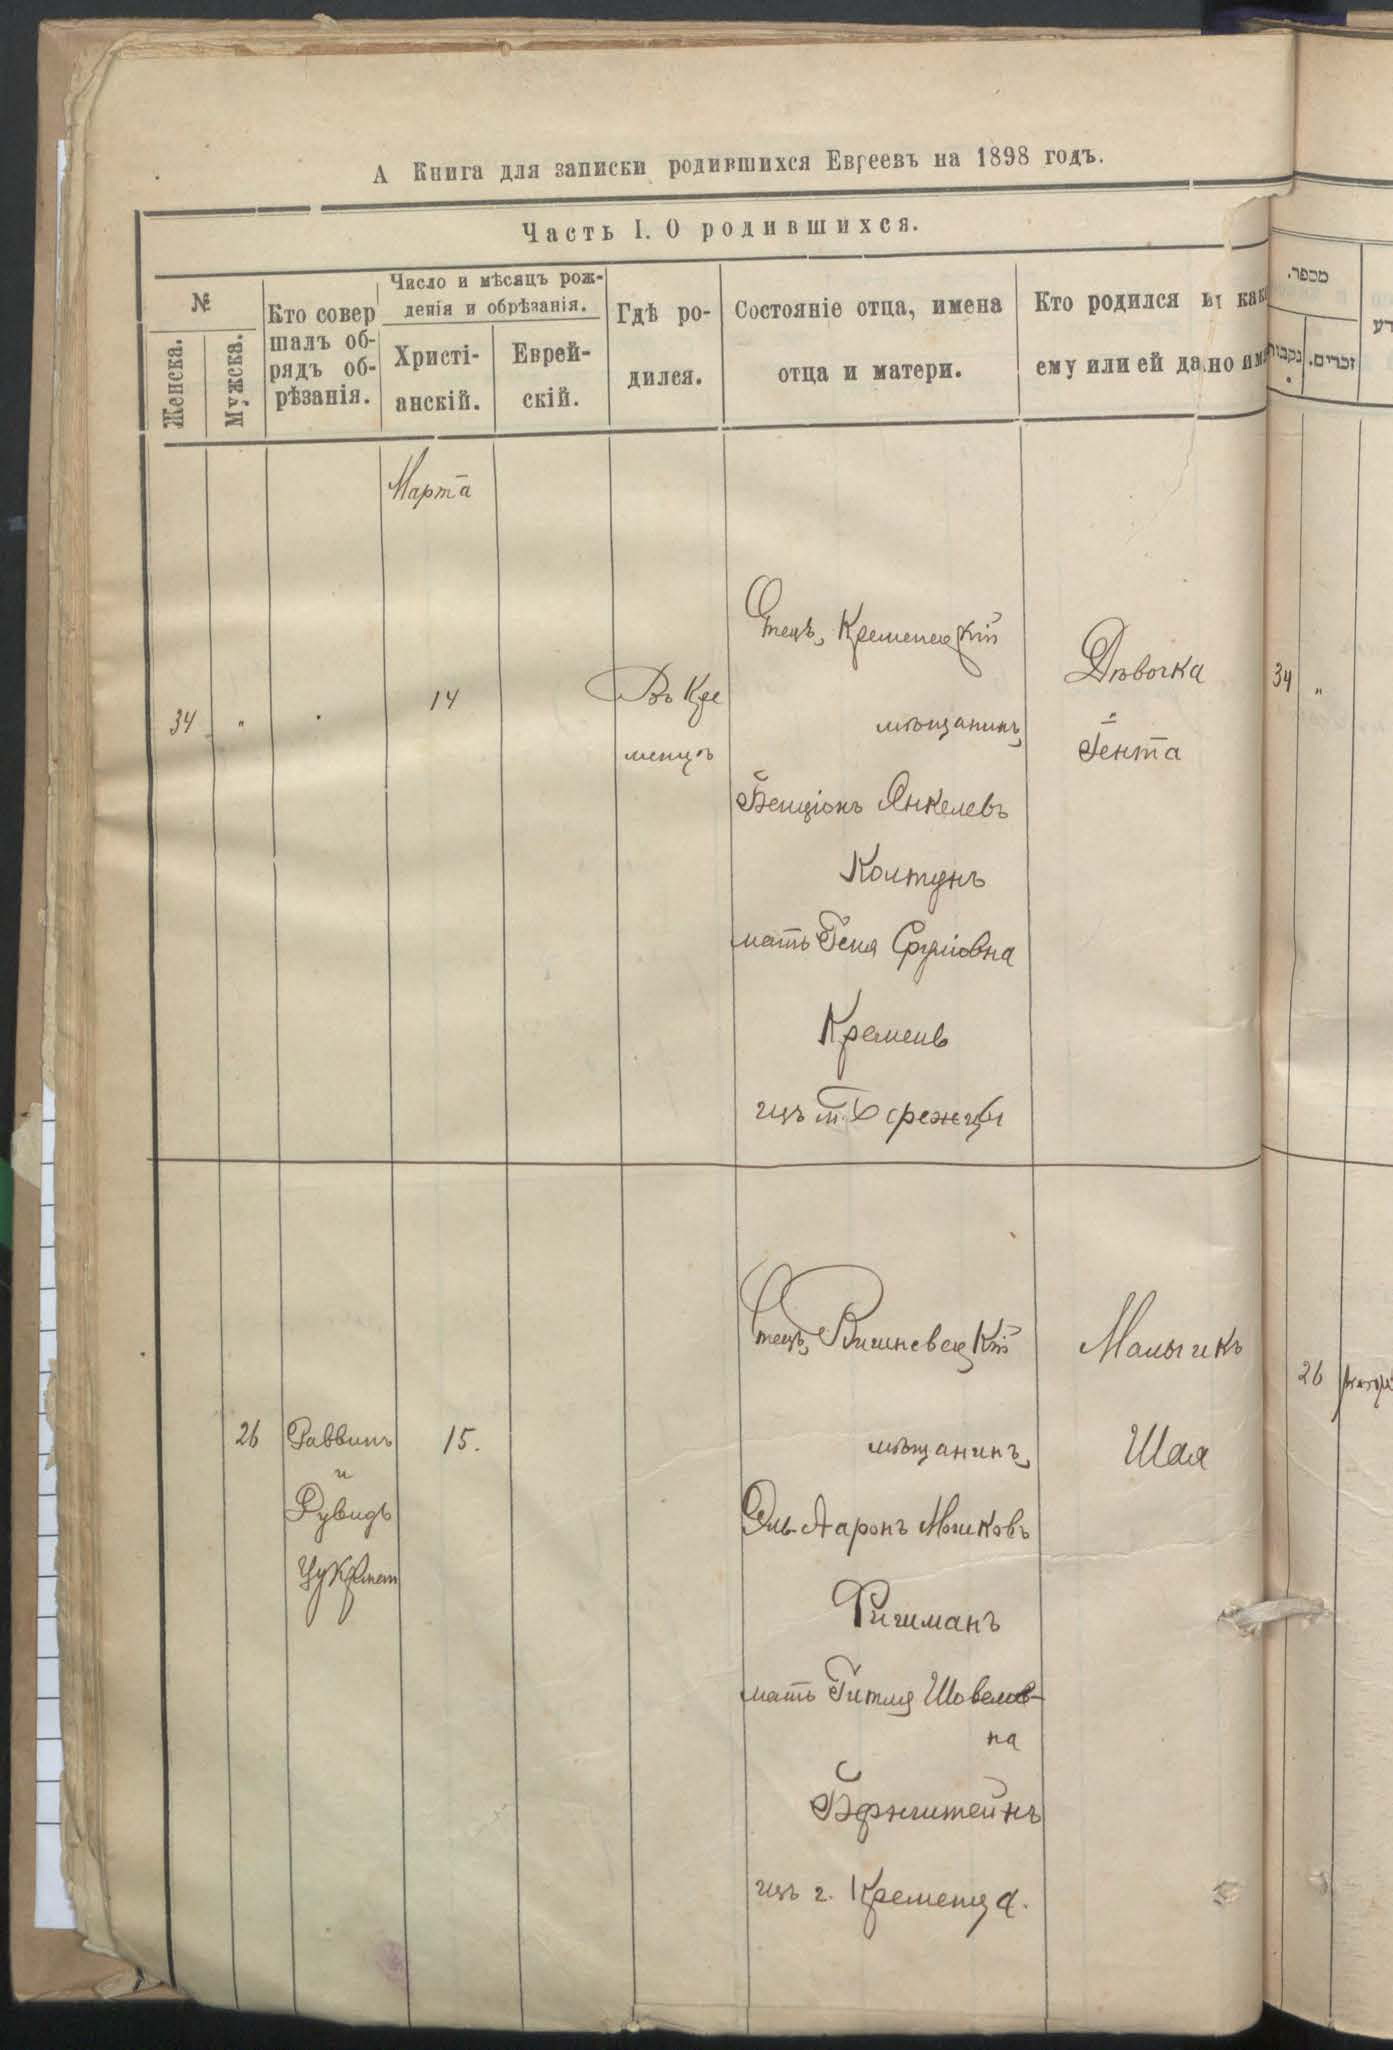 А Книга для записки родившихся Евреевъ на 1898 годъ.
Часть I. О родившихся.
№
Женска.
Мужска.
Кто совер
шалъ об-
рядъ об-
рѣзанія.
Число и мѣсяцъ рож-
денія и обрѣзанія.
Христі-
анскій.
Еврей-
скій.
Гдѣ ро-
дился.
Состояніе отца, имена
отца и матери.
Кто родился и како
ему или ей дано имя
מכפר.
זכרים.
נקבות
Марта
34 „ . 14
Въ Кре
менцѣ
Отецъ, Кременецкій
мѣщанинъ,
Бенціонъ Янкелевъ
Колтунъ
мать Геня Сруловна
Кремень
изъ м.
Дѣвочка
„
Гента
34 „
26
Раввинъ
и
Рувидъ
15.
Отецъ, Вишневецкій
мѣщанинъ,
Эль-Ааронъ Мошковъ
мать Гитля Шовелов-
на
Бернштейнъ
изъ г. Кременца.
Мальчикъ
Шая
26